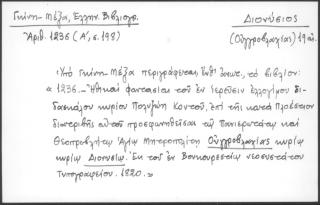 Γκίνη-Μέξα, Ἑλλην. Βιβλιογρ.
Ἀριθ. 1236 (Α', σ. 198)
Διονύσιος
(Οὑγγροβλαχίας) 19 αἰ.
«Ὑπὸ Γκίνη-Μέξα περιγράφεται, τὸ βιβλίον:
« 1236.- Ἠθικαὶ φαντασίαι τοῦ ἐν ἱερεῦσιν ἐλλογίμου δι-
δασκάλου κυρίου Πολυζώη Κοντοῦ, ἐπὶ τῆς κατὰ Πλοέστιον
διατριβῆς αὐτοῦ προσφωνηθεῖσαι τῷ Πανιερωτάτῳ καὶ
Θεοπροβλήτῳ Ἁγίῳ Μητροπολίτῃ Οὑγγροβλαχίας κυρίῳ
κυρίῳ Διονυσίῳ. Ἐκ τοῦ ἐν Βουκουρεστίῳ νεοσυστάτου
Τυπογραφείου. 1820.»